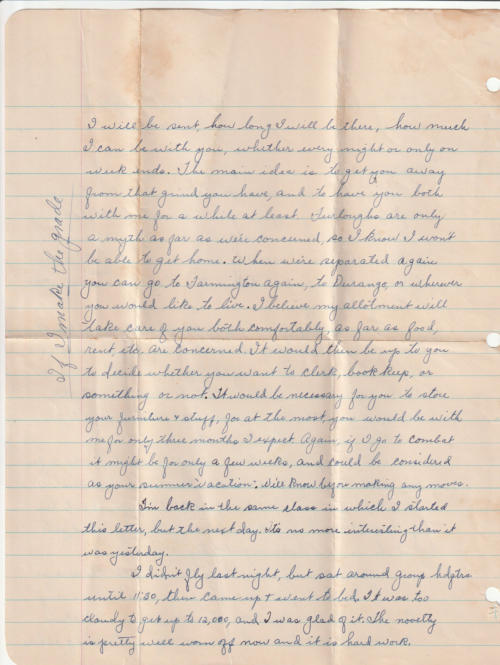 I will be sent, how long I will be there, how much
I can be with you, whether every night or only on
week ends. The main idea is to get you away
from that grind you have, and to have you both
with me for a while at least. Furloughs are only
a myth as far as we're concerned, so I know I won't
be able to get home. When we're separated again
you can go to Farmington again, to Durango, or wherever
you would like to live. I believe my allotment will
take care of you both comfortably, as far as food,
rent, etc, are concerned. It would then be up to you
to decide whether you want to clerk, book keep, or
something or not. It would be necessary for you to store
your furniture & stuff, for at the most, you would be with
me for only three months I expect. Again, if I go to combat
it might be for only a few weeks, and could be considered
as your summer vacation. Will know before making any moves.
I'm back in the same class in which I started
this letter, but the next day. It's no more interesting than it
was yesterday.
I didn't fly last night, but sat around group hdqtrs
until 11:30, then came up & went to bed. It was too
cloudy to get up to 12,000, and I was glad of it. The novelty
is pretty well worn off now and it is hard work.
If I make the grade